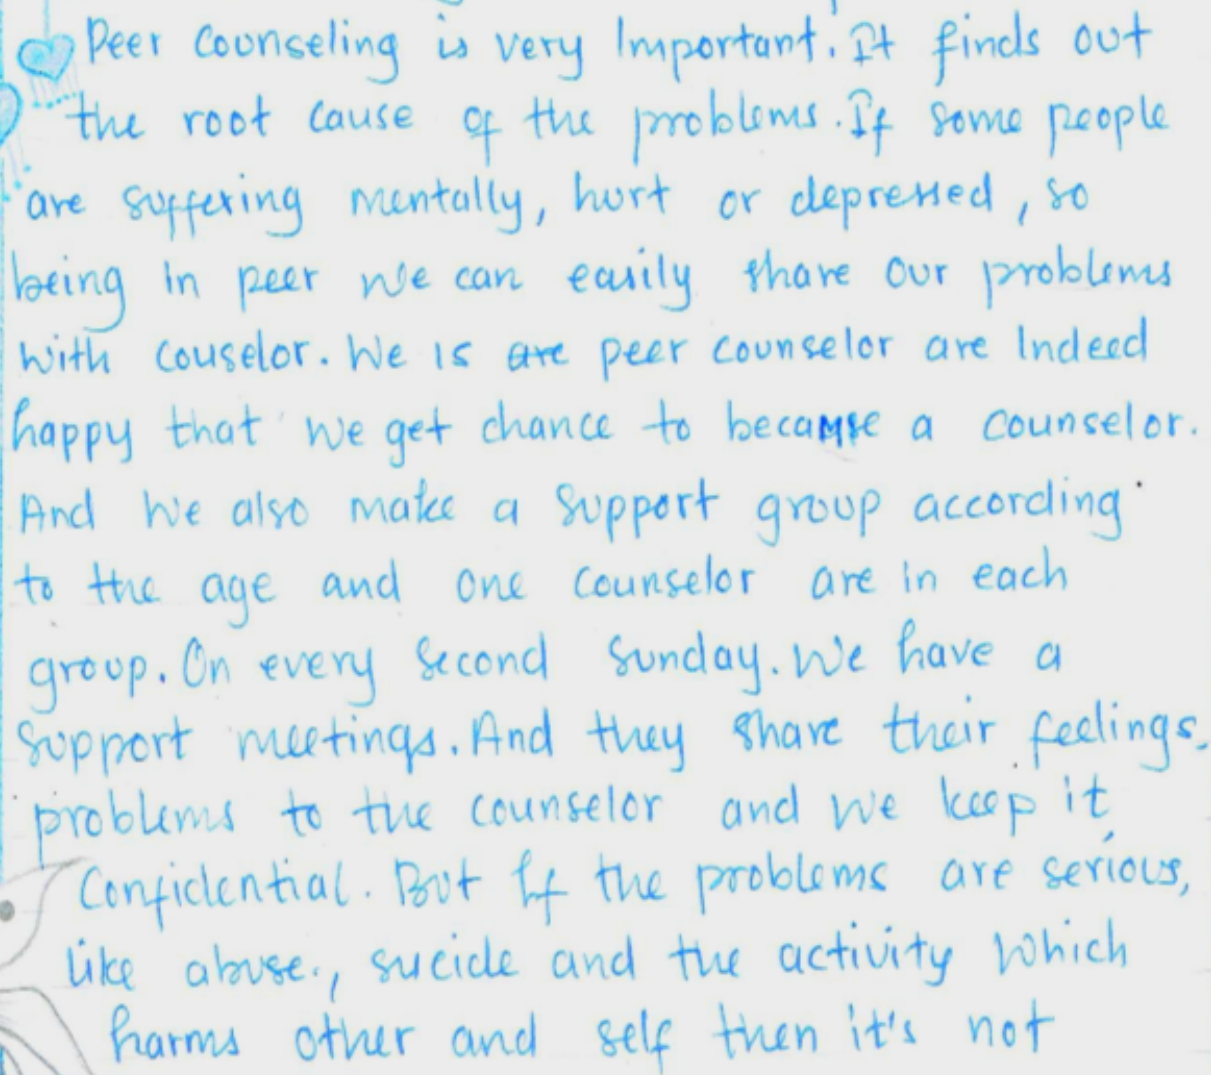 Peer counseling is very Important. It finds out
the root cause of the problems. If some people
are suffering mentally, hurt or depressed, so
being in peer we can easily share our problems
with couselor. We is are peer counselor are Indeed
happy that we get chance to became a counselor.
And we also make a support group according
to the age and one counselor are in each
group. On every second Sunday. We have a
support meetings. And they share their feelings,
problems to the counselor and we keep it
Confidential. But If the problems are serious,
like abuse, sucide and the activity which
harms other and self then it's not